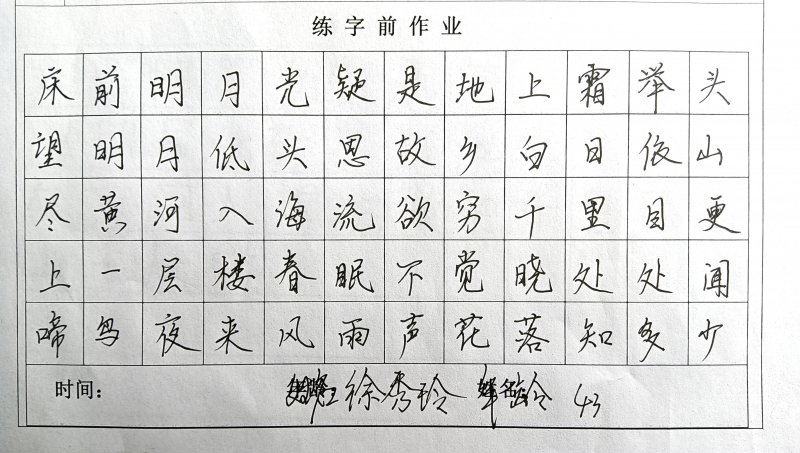 练字前作业
床前明月光疑是地上霜举头
望明月低头思故乡白日依山
尽黄河入海流欲穷千里目更
上一层楼春眠不觉晓处处闻
啼鸟夜来风雨声花落知多少
时间： 徐秀玲 年龄 43